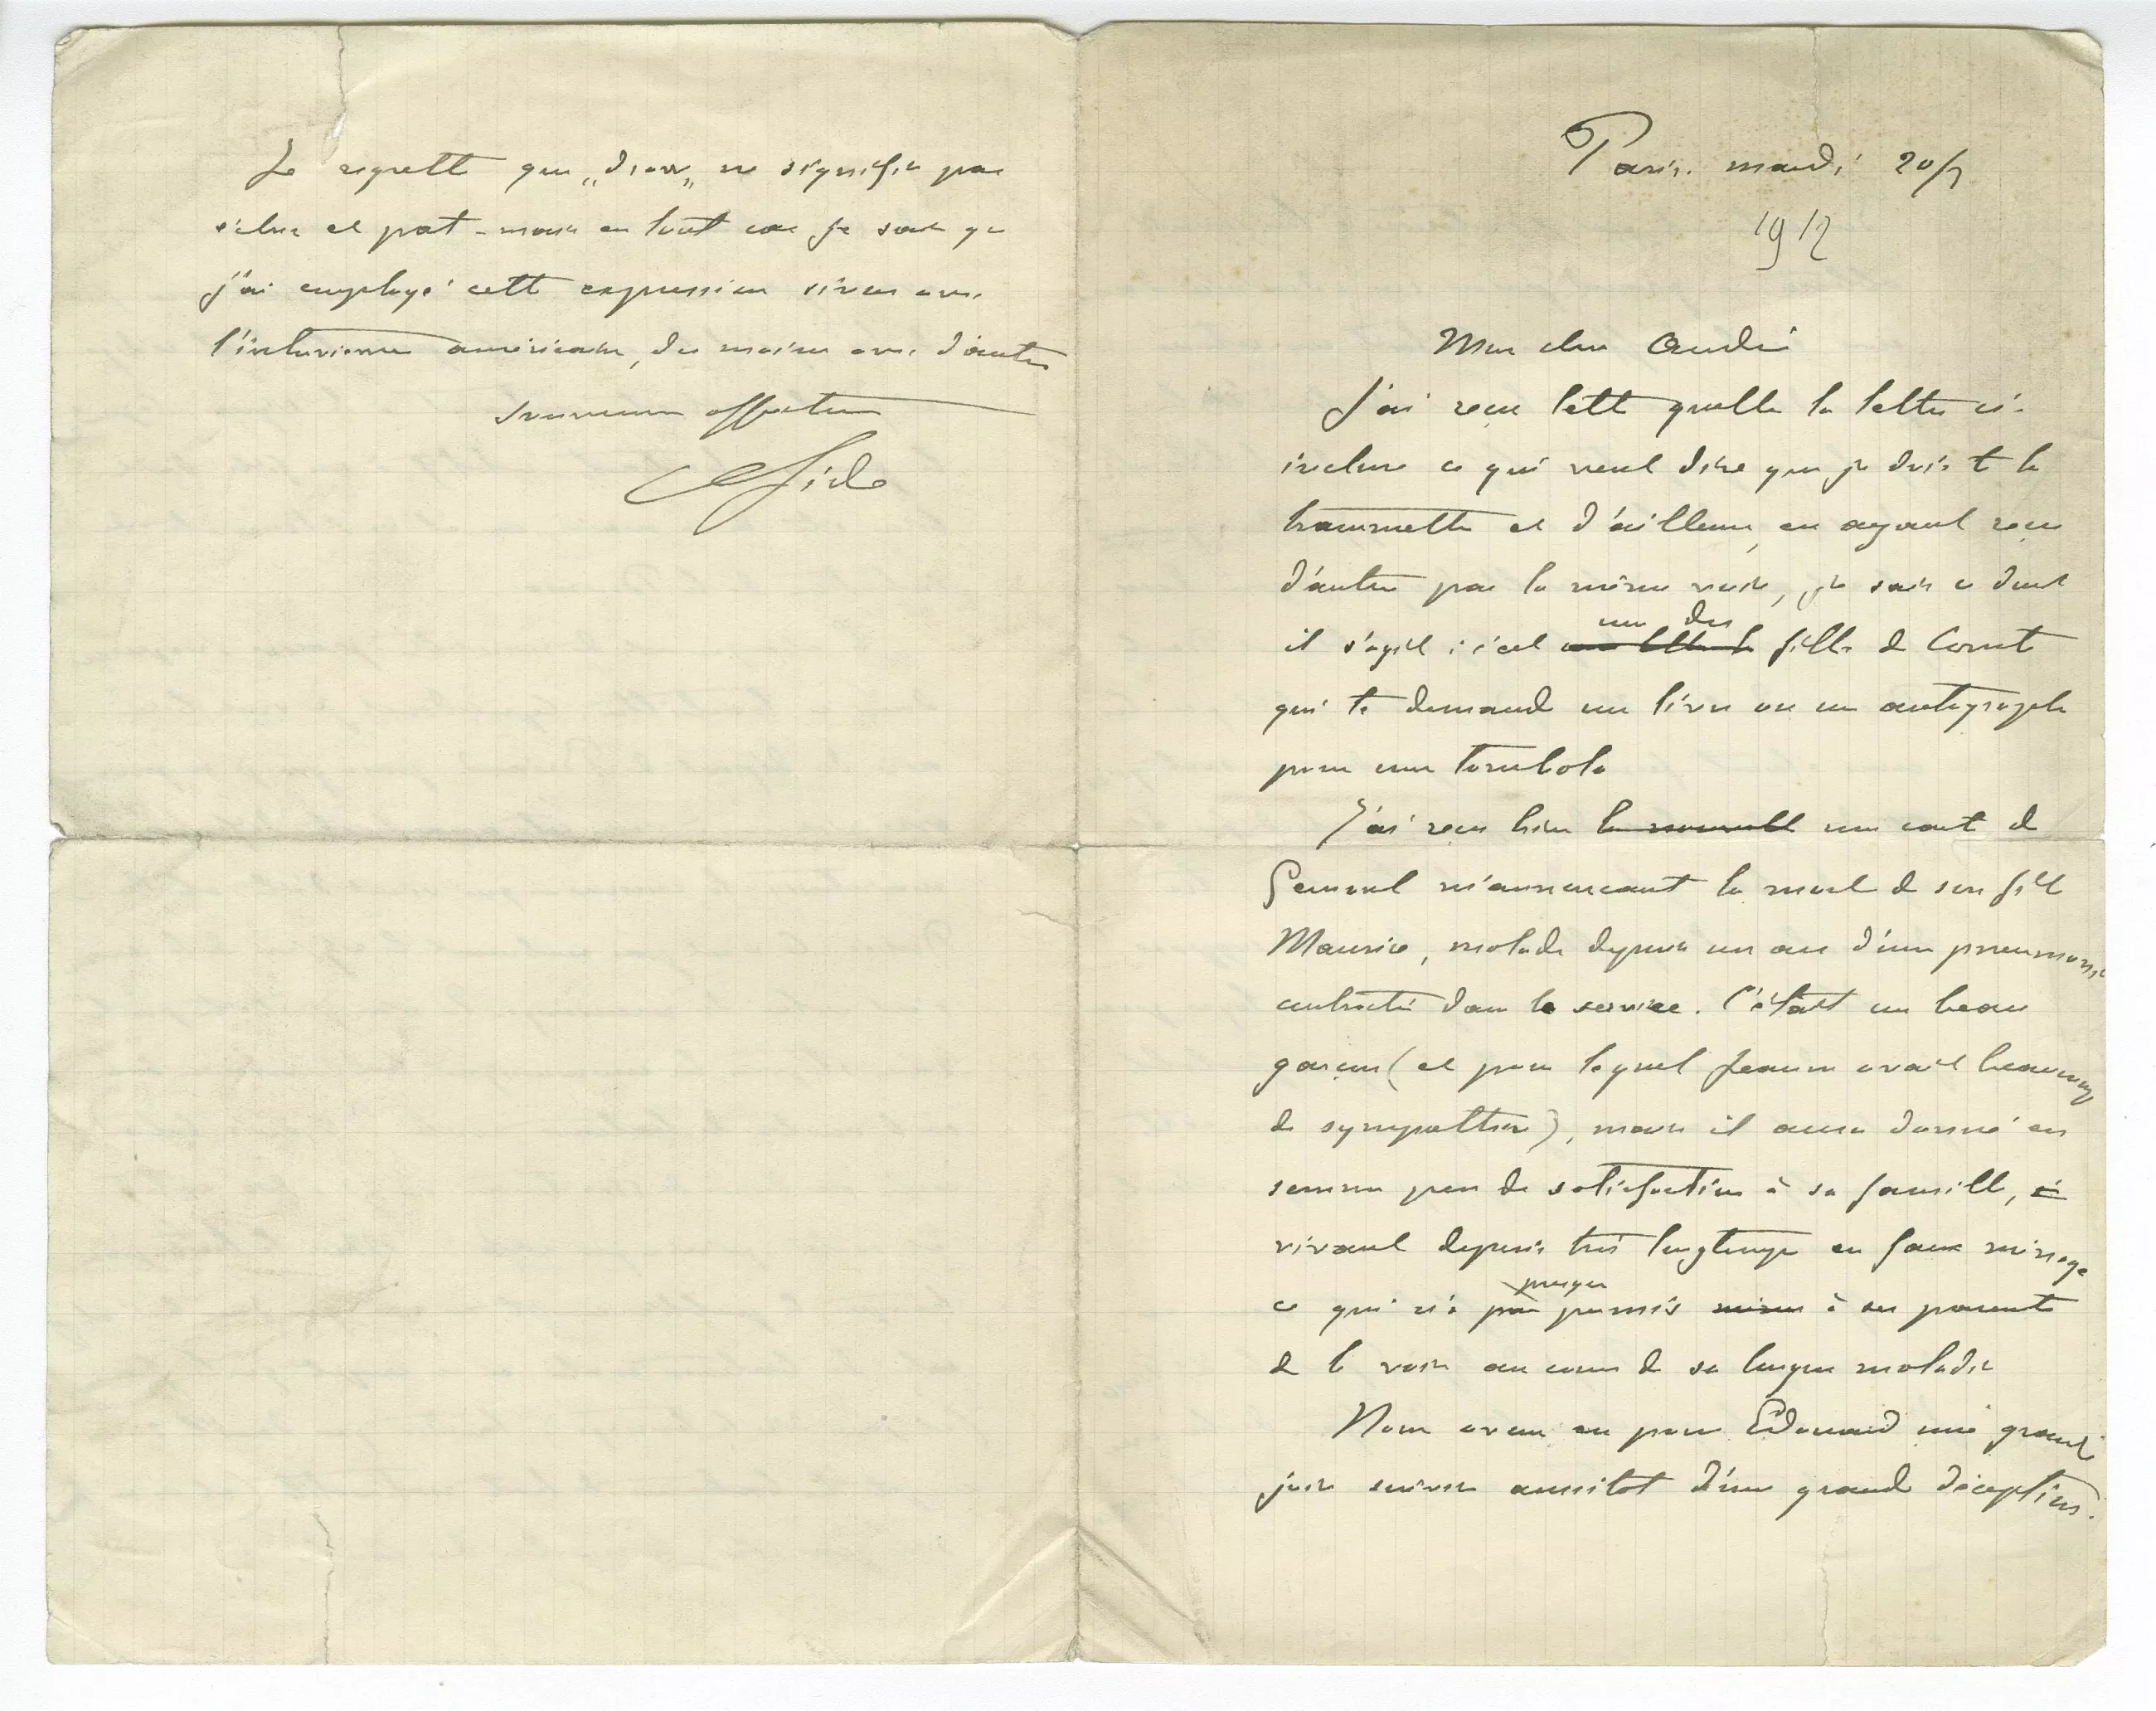 Paris. mardi 20/
1912
Mon cher André
J'ai reçu telle quelle la lettre ci-
incluse ce qui veut dire que je dois te la
transmettre et d'ailleurs, en ayant reçu
d'autres par la même voie, je sais ce dont
il s'agit : c'est une des fille de Comte
qui te demande un livre ou un autographe
pour une tombola
J'ai reçu hier la nouvelle une carte de
m'annonçant la mort de son fils
Maurice, malade depuis un an d'une pneumonie
contractée dans le service. C'était un beau
garçon (et pour lequel Jeanne avait beaucoup
de sympathie), mais il aura donné en
somme peu de satisfaction à sa famille, à
vivant depuis très longtemps en faux ménage
ce qui n'a pas presque permis même à ses parents
de le voir au cours de sa longue maladie
Nous avons eu pour Edouard une grande
joie suivie aussitôt d'une grande déception.
Je regrette que ne signifie pas
et - mais en tout cas je sais que
j'ai employé cette expression sinon avec
l'intervieweur américain, du moins avec d'autres
Souvenirs affectueux
Ch Gide